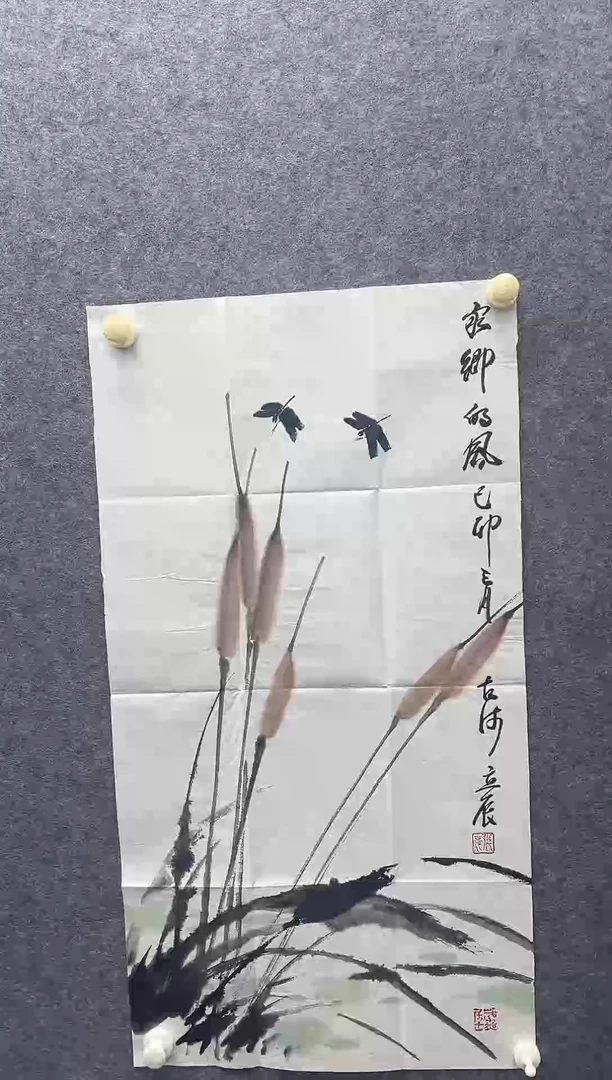 家鄉的風己卯三月古沛立辰